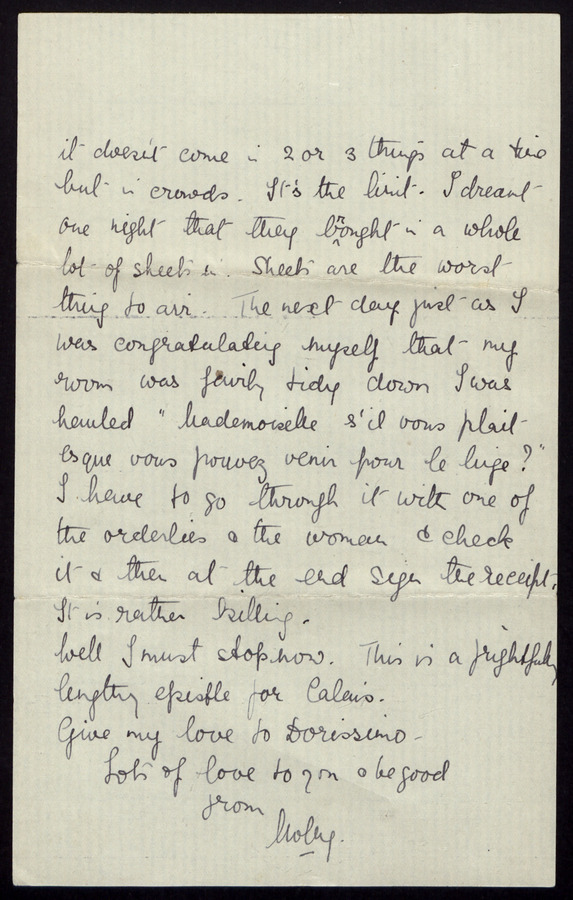 it doesn't come in 2 or 3 things at a time
but in crowds. It's the limit. I dreamt
one night that they brought in a whole
lot of sheets in. Sheets are the worst
thing to air. The next day just as I
was congratulating myself that my
room was fairly tidy down I was
hauled "Mademoiselle s'il vous plait
esque vous pouvez venir pour le linge?"
I have to go through it with one of
the orderlies & the woman & check
it & then at the end sign the receipt.
It is rather killing.
Well I must stop now. This is a frightfully
lengthy epistle for Calais.
Give my love to Dorissimo -
Lots of love to you & be good
from